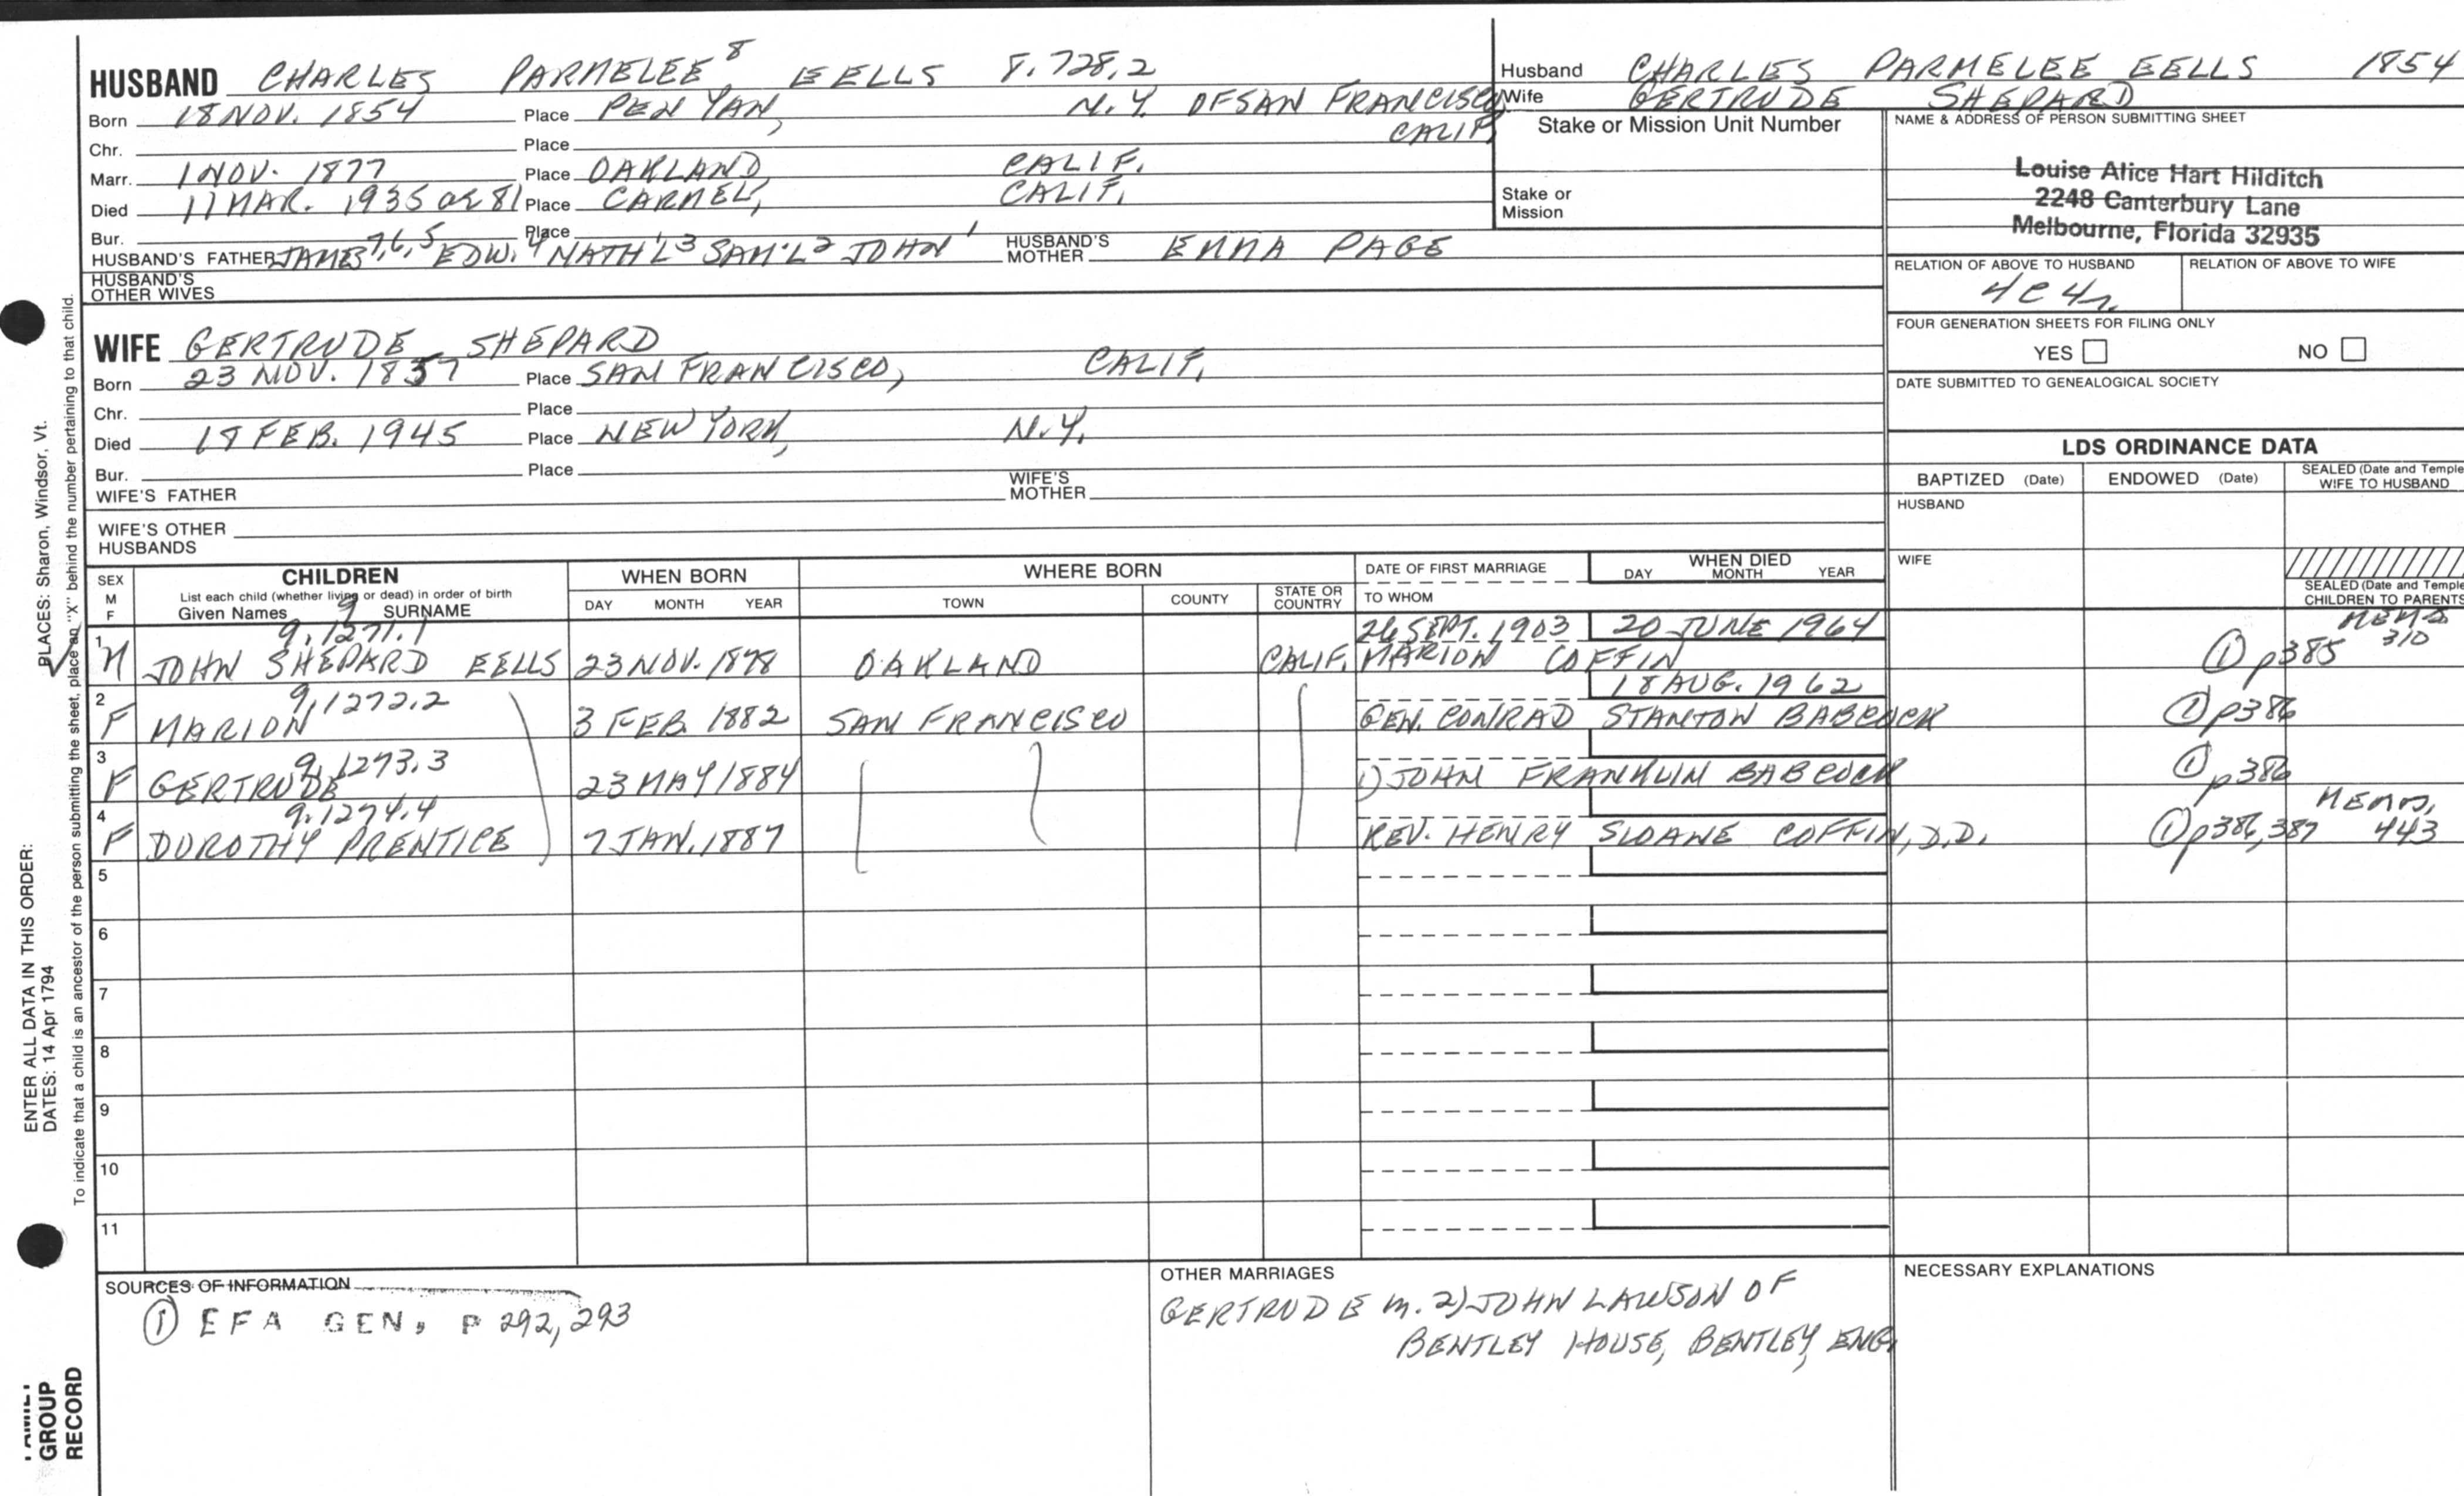 HUSBAND CHARLES PARMELEE 8 EELLS 8.728.2
Born 18 NOV. 1854 Place PEN YAN, N.Y. OF SAN FRANCISCO
CALIF.
Chr. Place
Marr. 1 NOV. 1877 Place OAKLAND, CALIF.
Died 11 MAR. 1935 OR 81 Place CARMEL, CALIF.
Bur. Place
HUSBAND'S FATHER JAMES 7,6,5 EDW. 4 NATH'L 3 SAM'L 2 JOHN 1 HUSBAND'S MOTHER EMMA PAGE
HUSBAND'S OTHER WIVES
WIFE GERTRUDE SHEPARD
Born 23 NOV. 1857 Place SAN FRANCISCO, CALIF.
Chr. Place
Died 18 FEB. 1945 Place NEW YORK, N.Y.
Bur. Place
WIFE'S FATHER WIFE'S MOTHER
WIFE'S OTHER HUSBANDS
Husband CHARLES PARMELEE EELLS 1854
Wife GERTRUDE SHEPARD
Stake or Mission Unit Number
Stake or Mission
NAME & ADDRESS OF PERSON SUBMITTING SHEET
Louise Alice Hart Hilditch
2248 Canterbury Lane
Melbourne, Florida 32935
RELATION OF ABOVE TO HUSBAND RELATION OF ABOVE TO WIFE
4C4r
FOUR GENERATION SHEETS FOR FILING ONLY
YES NO
DATE SUBMITTED TO GENEALOGICAL SOCIETY
LDS ORDINANCE DATA
BAPTIZED (Date) ENDOWED (Date) SEALED (Date and Temple WIFE TO HUSBAND
HUSBAND
WIFE
SEALED (Date and Temple
CHILDREN TO PARENTS
SEX M F CHILDREN WHEN BORN WHERE BORN DATE OF FIRST MARRIAGE WHEN DIED
List each child (whether living or dead) in order of birth
Given Names 9 SURNAME DAY MONTH YEAR TOWN COUNTY STATE OR COUNTRY TO WHOM DAY MONTH YEAR
9.1271.1 26 SEPT. 1903 20 JUNE 1964
1 M JOHN SHEPARD EELLS 23 NOV. 1878 OAKLAND CALIF. MARION COFFIN ① p385 310
9.1272.2 18 AUG. 1962
2 F MARION 3 FEB. 1882 SAN FRANCISCO GEN. CONRAD STANTON BABCOCK ① p386
9.1273.3
3 F GERTRUDE 23 MAY 1884 1) JOHN FRANKLIN BABCOCK ① p386
9.1274.4
4 F DOROTHY PRENTICE 7 JAN. 1887 REV. HENRY SLOANE COFFIN, D.D. ① p386,387 443
5
6
7
8
9
10
11
SOURCES OF INFORMATION
① EFA GEN, P 292, 293
OTHER MARRIAGES
GERTRUDE m. 2) JOHN LAWSON OF
BENTLEY HOUSE, BENTLEY, ENG.
NECESSARY EXPLANATIONS
ENTER ALL DATA IN THIS ORDER:
DATES: 14 Apr 1794 PLACES: Sharon, Windsor, Vt.
To indicate that a child is an ancestor of the person submitting the sheet, place an "X" behind the number pertaining to that child.
GROUP
RECORD